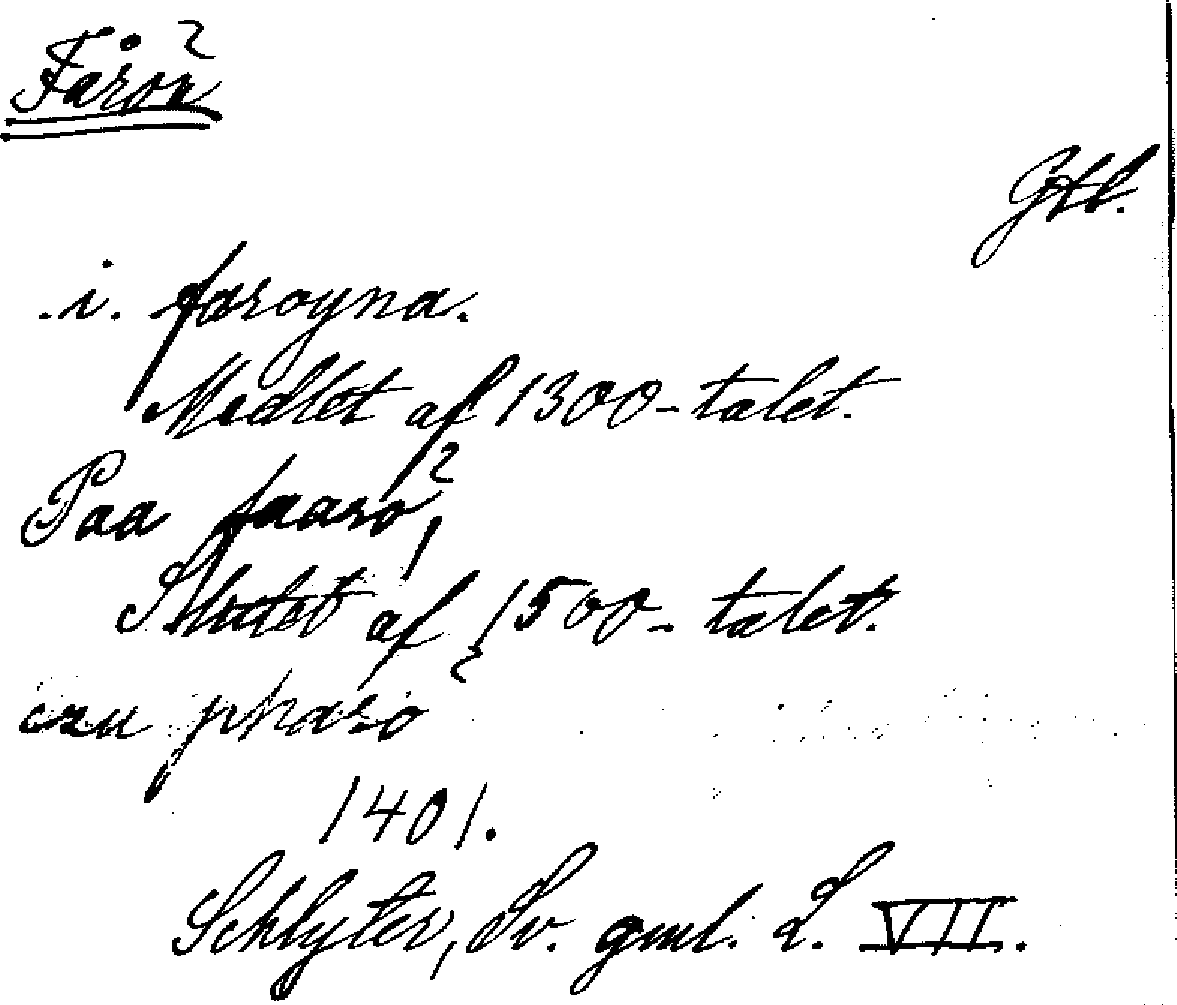 Fårön
Gtl.
.i. faroyna.
Medlet af 1300-talet.
Paa faarö,
Slutet af 1500-talet.
czu pharö
1401.
Schlyter, Sv. gml. L. VII.